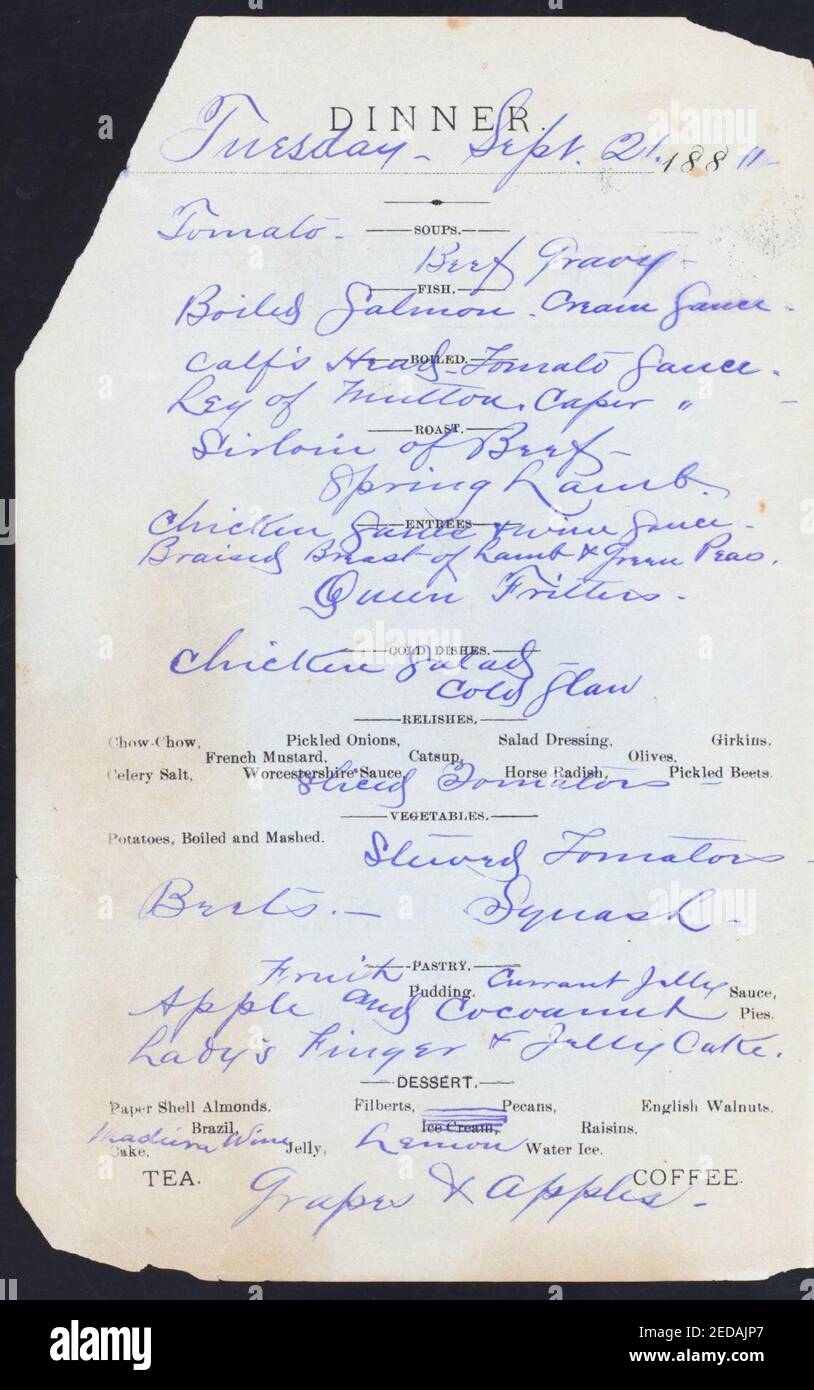 DINNER.
Tuesday - Sept. 21. 188
Tomato - SOUPS.
Beef Gravy -
FISH.
Boiled Salmon - Cream Sauce -
BOILED.
Calf's Head - Tomato Sauce -
Leg of Mutton, Caper " -
ROAST.
Sirloin of Beef -
Spring Lamb.
ENTREES
Chicken Saute & Wine Sauce -
Braised Breast of Lamb & Green Peas.
Queen Fritters -
COLD DISHES.
Chicken Salad -
Cold Slaw
RELISHES.
Chow-Chow, Pickled Onions, Salad Dressing, Girkins,
French Mustard, Catsup, Olives,
Celery Salt, Worcestershire Sauce, Horse Radish, Pickled Beets.
Sliced Tomatoes -
VEGETABLES.
Potatoes, Boiled and Mashed.
Stewed Tomatoes -
Beets. - Squash -
PASTRY.
Fruit Pudding, Currant Jelly Sauce,
Apple and Cocoanut Pies.
Lady's Finger & Jelly Cake.
DESSERT.
Paper Shell Almonds, Filberts, Pecans, English Walnuts.
Brazil, Ice Cream, Raisins.
Cake, Madiera Wine Jelly, Lemon Water Ice.
TEA. COFFEE.
Grapes & Apples -
alamy
Image ID: 2EDAJP7
www.alamy.com